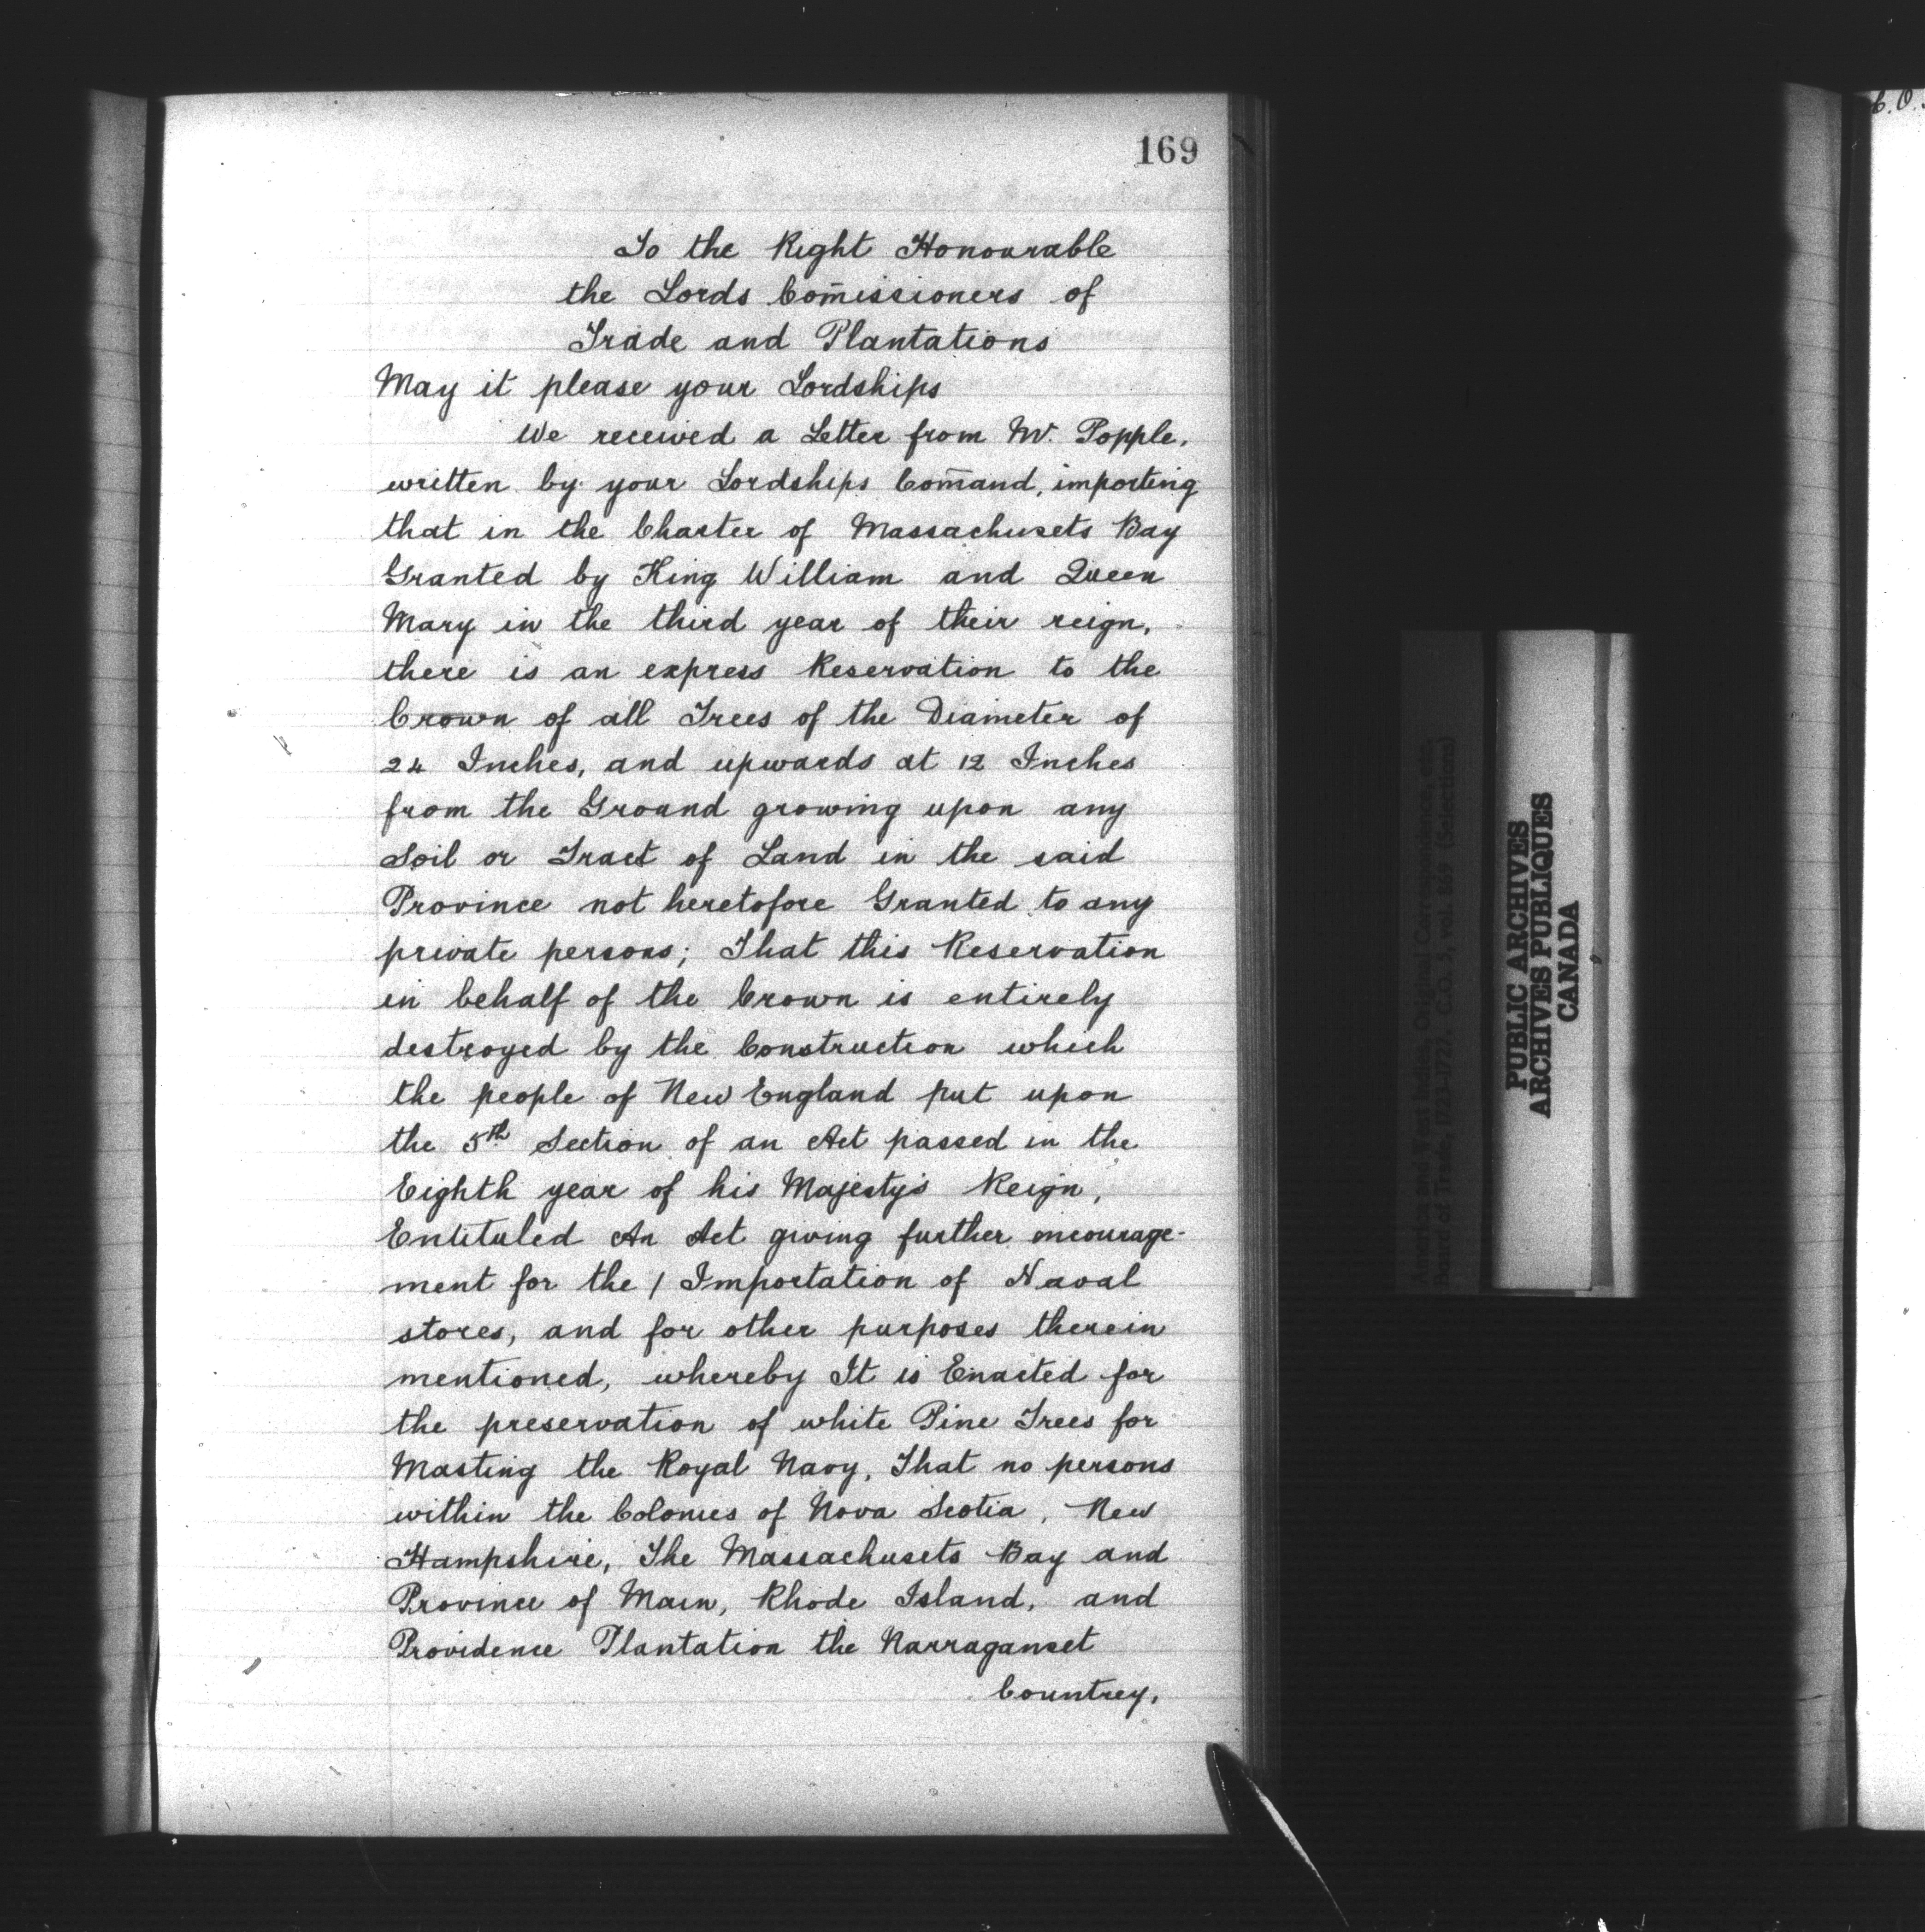 169
To the Right Honourable
the Lords Com̄issioners of
Trade and Plantations
May it please your Lordships
We received a Letter from Mr. Popple,
written by your Lordships Com̄and, importing
that in the Charter of Massachusets Bay
Granted by King William and Queen
Mary in the third year of their reign,
there is an express Reservation to the
Crown of all Trees of the Diameter of
24 Inches, and upwards at 12 Inches
from the Ground growing upon any
Soil or Tract of Land in the said
Province not heretofore Granted to any
private persons; That this Reservation
in behalf of the Crown is entirely
destroyed by the Construction which
the people of New England put upon
the 5th Section of an Act passed in the
Eighth year of his Majesty's Reign,
Entituled An Act giving further encourage-
ment for the / Importation of Naval
stores, and for other purposes therein
mentioned, whereby It is Enacted for
the preservation of white Pine Trees for
Masting the Royal Navy, That no persons
within the Colonies of Nova Scotia, New
Hampshire, The Massachusets Bay and
Province of Main, Rhode Island, and
Providence Plantation the Narraganset
Countrey,
America and West Indies, Original Correspondence, etc.
Board of Trade, 1723-1727. C.O. 5, vol. 869 (Selections)
PUBLIC ARCHIVES
ARCHIVES PUBLIQUES
CANADA
C.O.